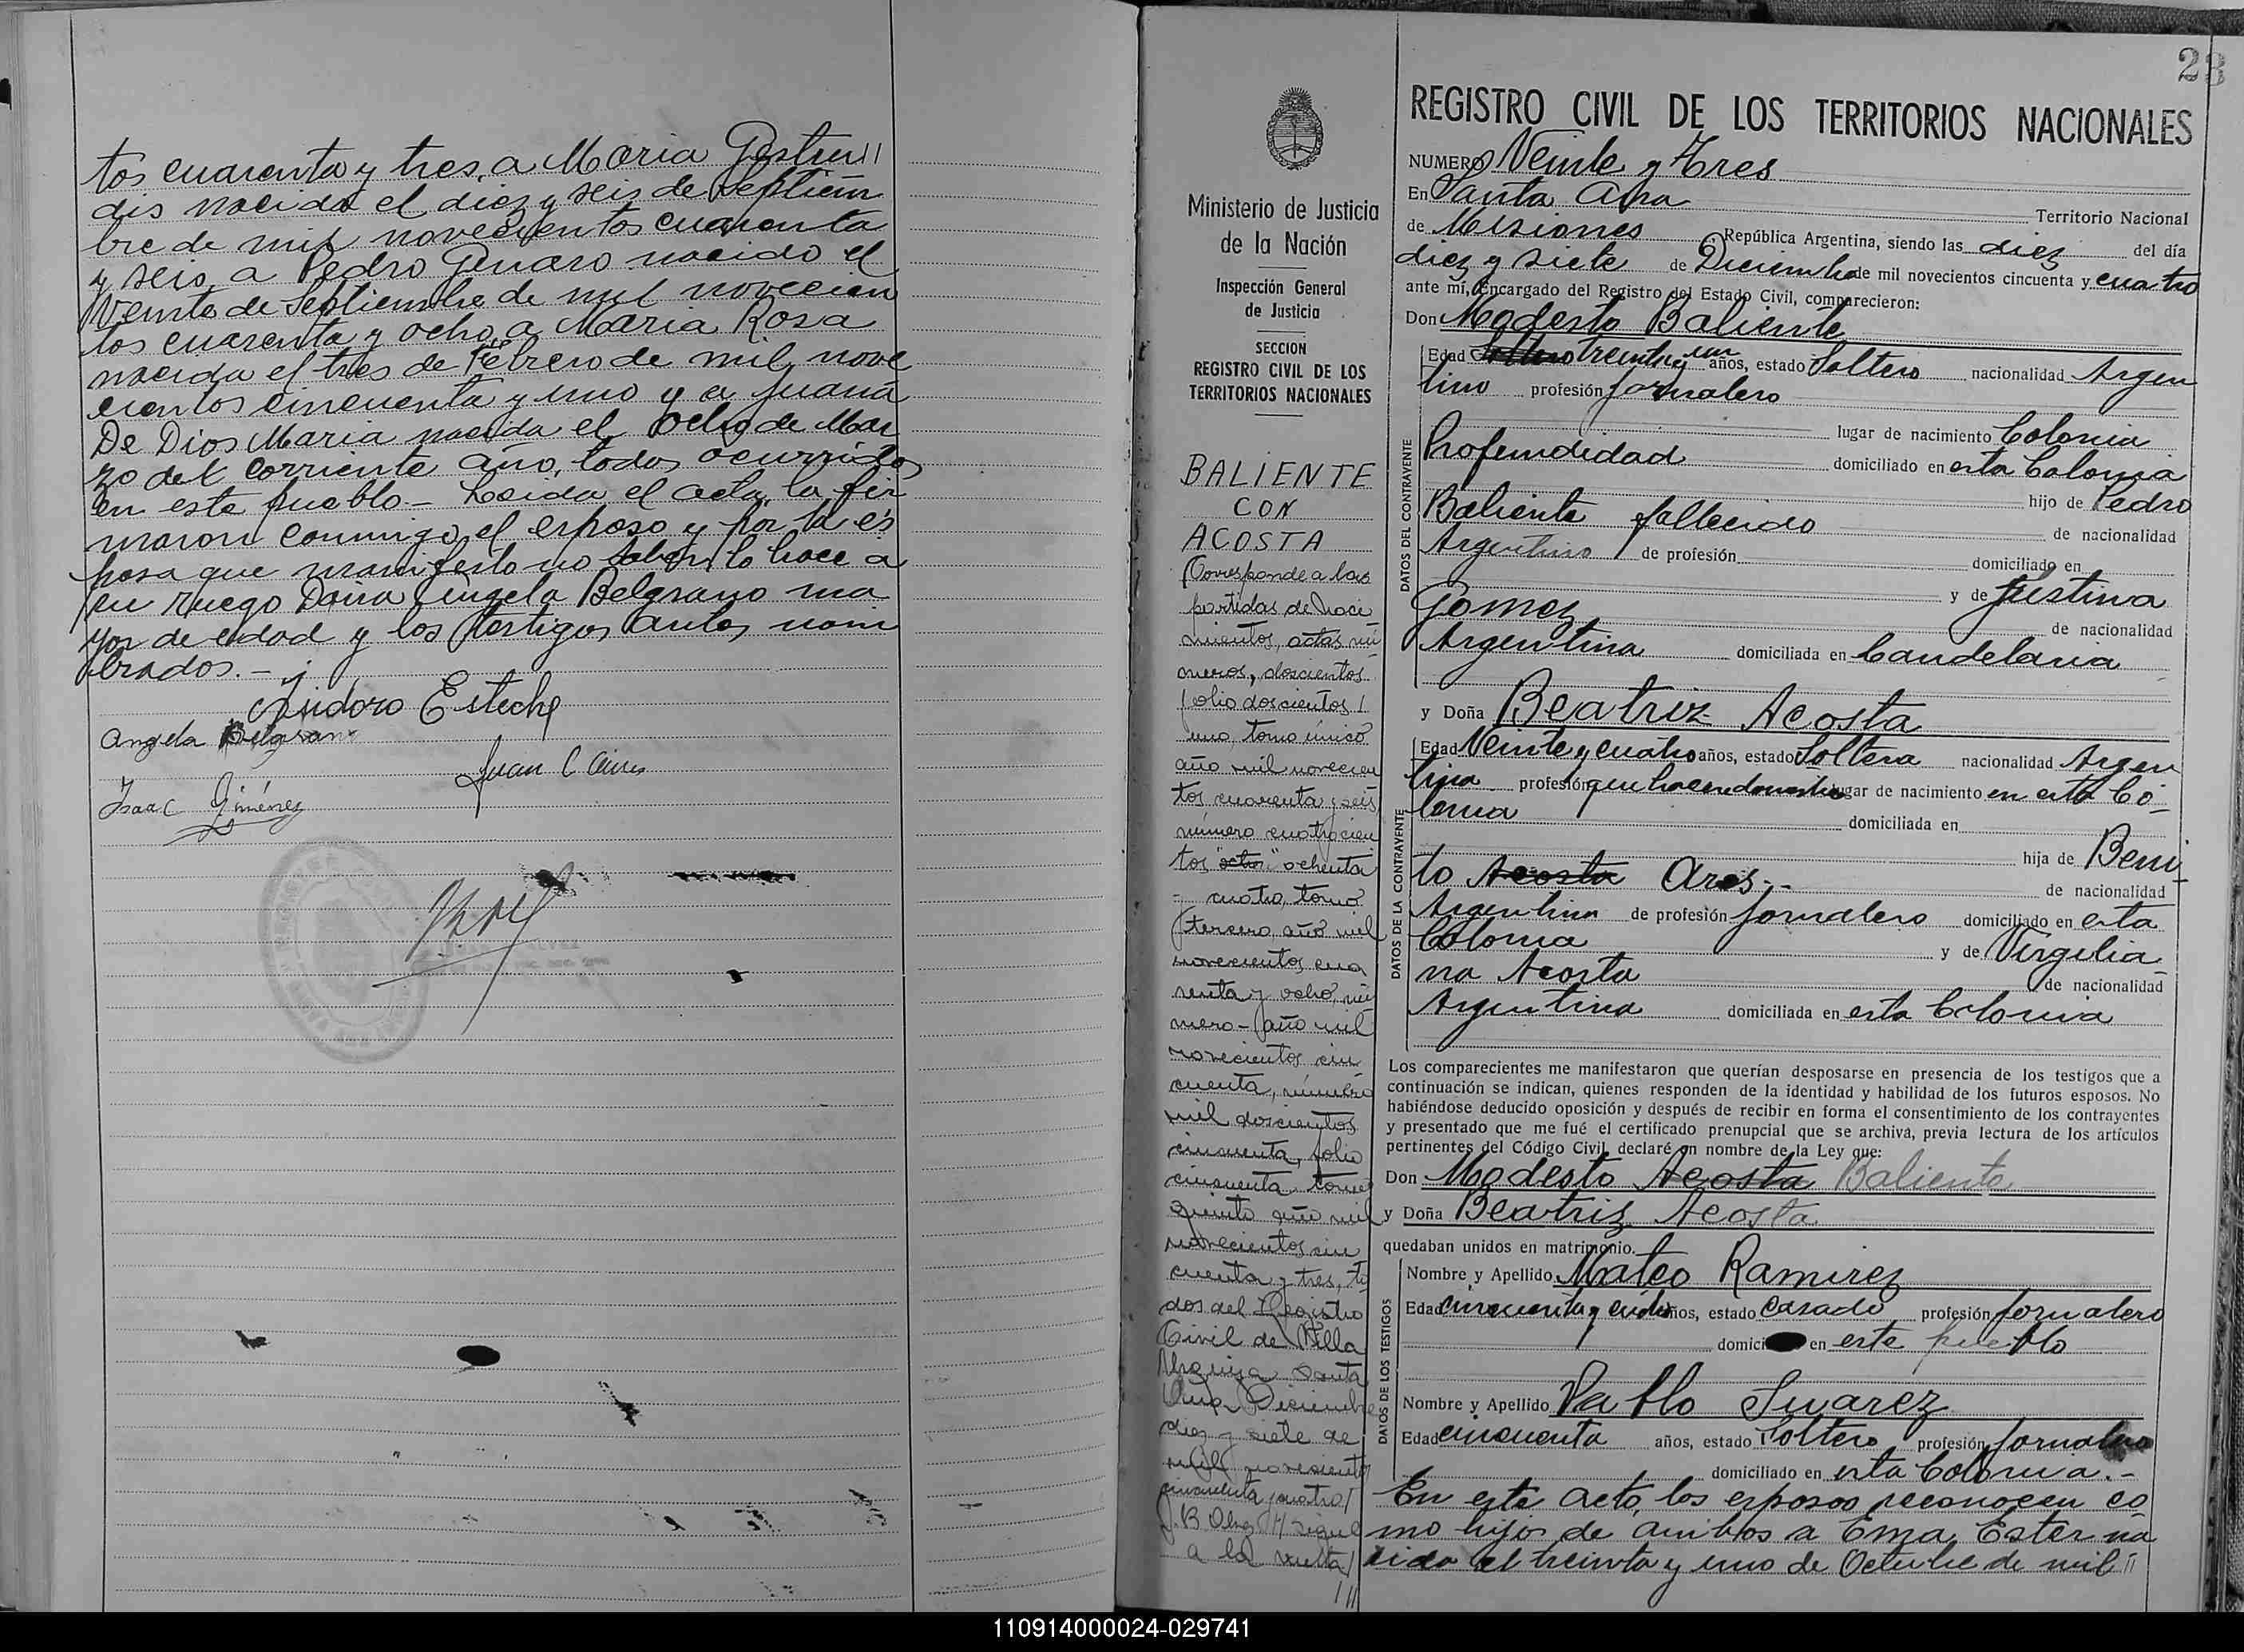 tos cuarenta y tres, a Maria Gertru//
dis nacida el diez y seis de Septiem
bre de mil novecientos cuarenta
y seis, a Pedro Genaro nacido el
Veinte de Septiembre de mil novecien
tos cuarenta y ocho, a Maria Rosa
nacida el tres de Febrero de mil nove
cientos cincuenta y uno y a Juana
De Dios Maria nacida el ocho de Mar
zo del corriente año, todos ocurridos
en este pueblo.- Leída el acta, la fir
maron conmigo, el esposo y por la es
posa que manifesto no saber lo hace a
su ruego Doña Angela Belgrano ma
yor de edad y los testigos antes nom
brados.-
Isidoro Esteche
Angela Belgrano
Juan C
Isaac Giménez
23
REGISTRO CIVIL DE LOS TERRITORIOS NACIONALES
Ministerio de Justicia
de la Nación
Inspección General
de Justicia
SECCION
REGISTRO CIVIL DE LOS
TERRITORIOS NACIONALES
BALIENTE
CON
ACOSTA
Corresponde a las
partidas de naci
mientos, actas nú
meros, doscientos
folio doscientos /
uno, tomo único
año mil novecien
tos cuarenta y seis
número cuatrocien
tos "ocho" ochenta
cuatro, tomo
tercero, año mil
novecientos cua
renta y ocho, nú
mero - año mil
novecientos cin
cuenta, número
mil doscientos
cincuenta, folio
cincuenta tomo
quinto año mil
novecientos cin
cuenta y tres, to
dos del Registro
Civil de Villa
Urquiza Santa
Ana, Diciembre
diez y siete de
mil novecientos
cincuenta y cuatro/
J. B. Sigue
a la vuelta/
//
NUMERO Veinte y Tres
En Santa Ana Territorio Nacional
de Misiones República Argentina, siendo las diez del día
diez y siete de Diciembre de mil novecientos cincuenta y cuatro
ante mí, Encargado del Registro del Estado Civil, comparecieron:
Don Modesto Baliente
DATOS DEL CONTRAYENTE
Edad soltero treinta y un años, estado Soltero nacionalidad Argen
tino profesión jornalero
lugar de nacimiento Colonia
Profundidad domiciliado en esta Colonia
hijo de Pedro
Baliente fallecido de nacionalidad
Argentino de profesión domiciliado en
y de Justina
Gomez de nacionalidad
Argentina domiciliada en Candelaria
y Doña Beatriz Acosta
DATOS DE LA CONTRAYENTE
Edad Veinte y cuatro años, estado Soltera nacionalidad Argen
tina profesión quehaceres domesticos lugar de nacimiento en esta Co-
lonia domiciliada en
hija de Beni-
to Acosta Ares.- de nacionalidad
Argentina de profesión jornalero domiciliado en esta
Colonia y de Virgilia-
na Acosta de nacionalidad
Argentina domiciliada en esta Colonia
Los comparecientes me manifestaron que querían desposarse en presencia de los testigos que a
continuación se indican, quienes responden de la identidad y habilidad de los futuros esposos. No
habiéndose deducido oposición y después de recibir en forma el consentimiento de los contrayentes
y presentado que me fué el certificado prenupcial que se archiva, previa lectura de los artículos
pertinentes del Código Civil, declaré en nombre de la Ley que:
Don Modesto Acosta Baliente
y Doña Beatriz Acosta
quedaban unidos en matrimonio.
DATOS DE LOS TESTIGOS
Nombre y Apellido Mateo Ramirez
Edad cincuenta y años, estado casado profesión jornalero
domici en este pueblo
Nombre y Apellido Pablo Suarez
Edad cincuenta años, estado soltero profesión jornalero
domiciliado en esta Colonia.-
En este acto, los esposos reconocen co
mo hijos de ambos a Ema Ester na
cida el treinta y uno de Octubre de mil //
110914000024-029741